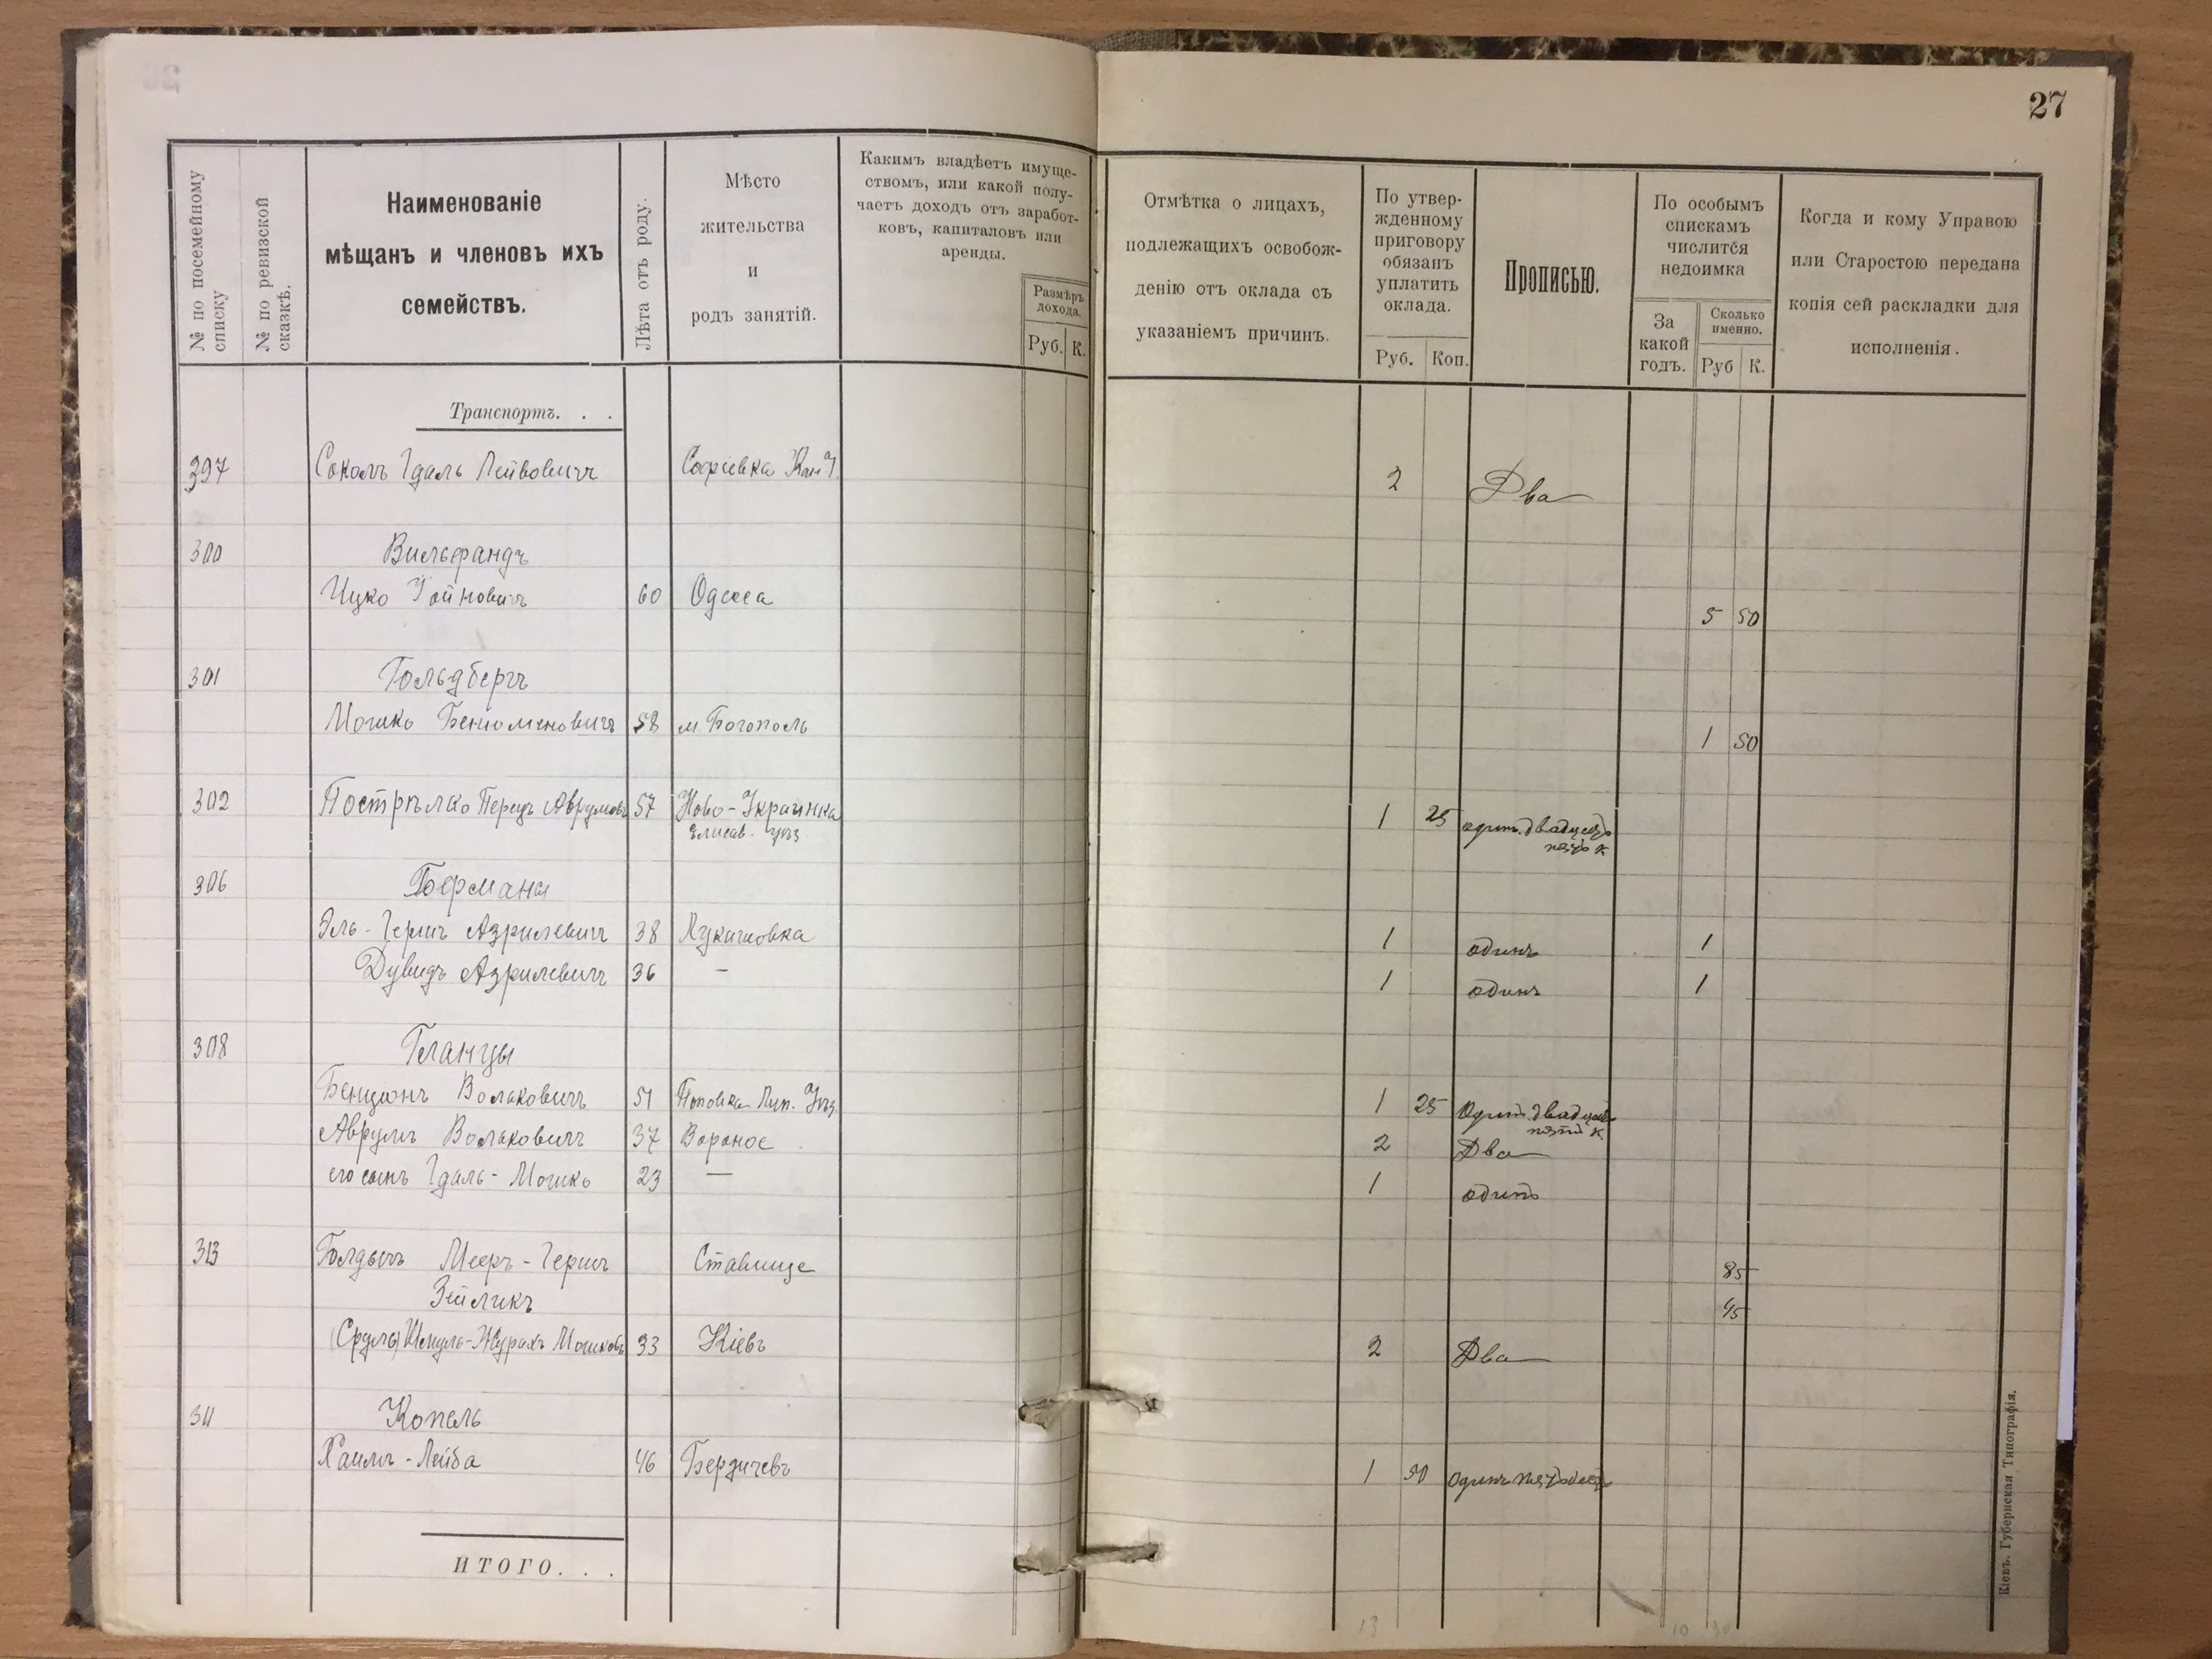 27
№ по посемейному списку
№ по ревизской сказкѣ.
Наименованіе
мѣщанъ и членовъ ихъ
семействъ.
Лѣта отъ роду.
Мѣсто
жительства
и
родъ занятій.
Какимъ владѣетъ имуще-
ствомъ, или какой полу-
чаетъ доходъ отъ заработ-
ковъ, капиталовъ или
аренды.
Размѣръ
дохода.
Руб. К.
Отмѣтка о лицахъ,
подлежащихъ освобож-
денію отъ оклада съ
указаніемъ причинъ.
По утвер-
жденному
приговору
обязанъ
уплатить
оклада.
Руб. Коп.
Прописью.
По особымъ
спискамъ
числится
недоимка
За
какой
годъ.
Сколько
именно.
Руб К.
Когда и кому Управою
или Старостою передана
копія сей раскладки для
исполненія.
Транспортъ. . .
397 Соколъ Гдаль Лейбовичъ Софіевка 2 Два
300 Вильфандъ
Ицко 60 Одесса 5 50
301 Гольдбергъ
Мошко Беніоминовичъ 58 м. Богополь 1 50
302 Пострѣлко Перецъ Аврумовъ 57 Ново-Украинка 1 25 одинъ двадцать
Елисав. уѣз. пять к
306 Гофманы
Эль-Гершъ Азрилевичъ 38 Лукашовка 1 одинъ 1
Дувидъ Азрилевичъ 36 — 1 одинъ 1
308 Гланцы
Бенціонъ Волковичъ 51 Поповка Лип. Уѣз. 1 25 Один. двадцать
пять к.
Аврумъ Волковичъ 37 Вороное 2 Два
его сынъ Гдаль-Мошко 23 — 1 одинъ
313 Голдычъ Мееръ-Гершъ Ставище 85
Зейликъ 45
(Сруль) Шмуль-Журахъ Мошковъ 33 Кіевъ 2 Два
311 Копель
Хаимъ-Лейба 46 Бердичевъ 1 50 Одинъ пятьдесят
ИТОГО. . .
13 10 30
Кіевъ. Губернская Типографія.